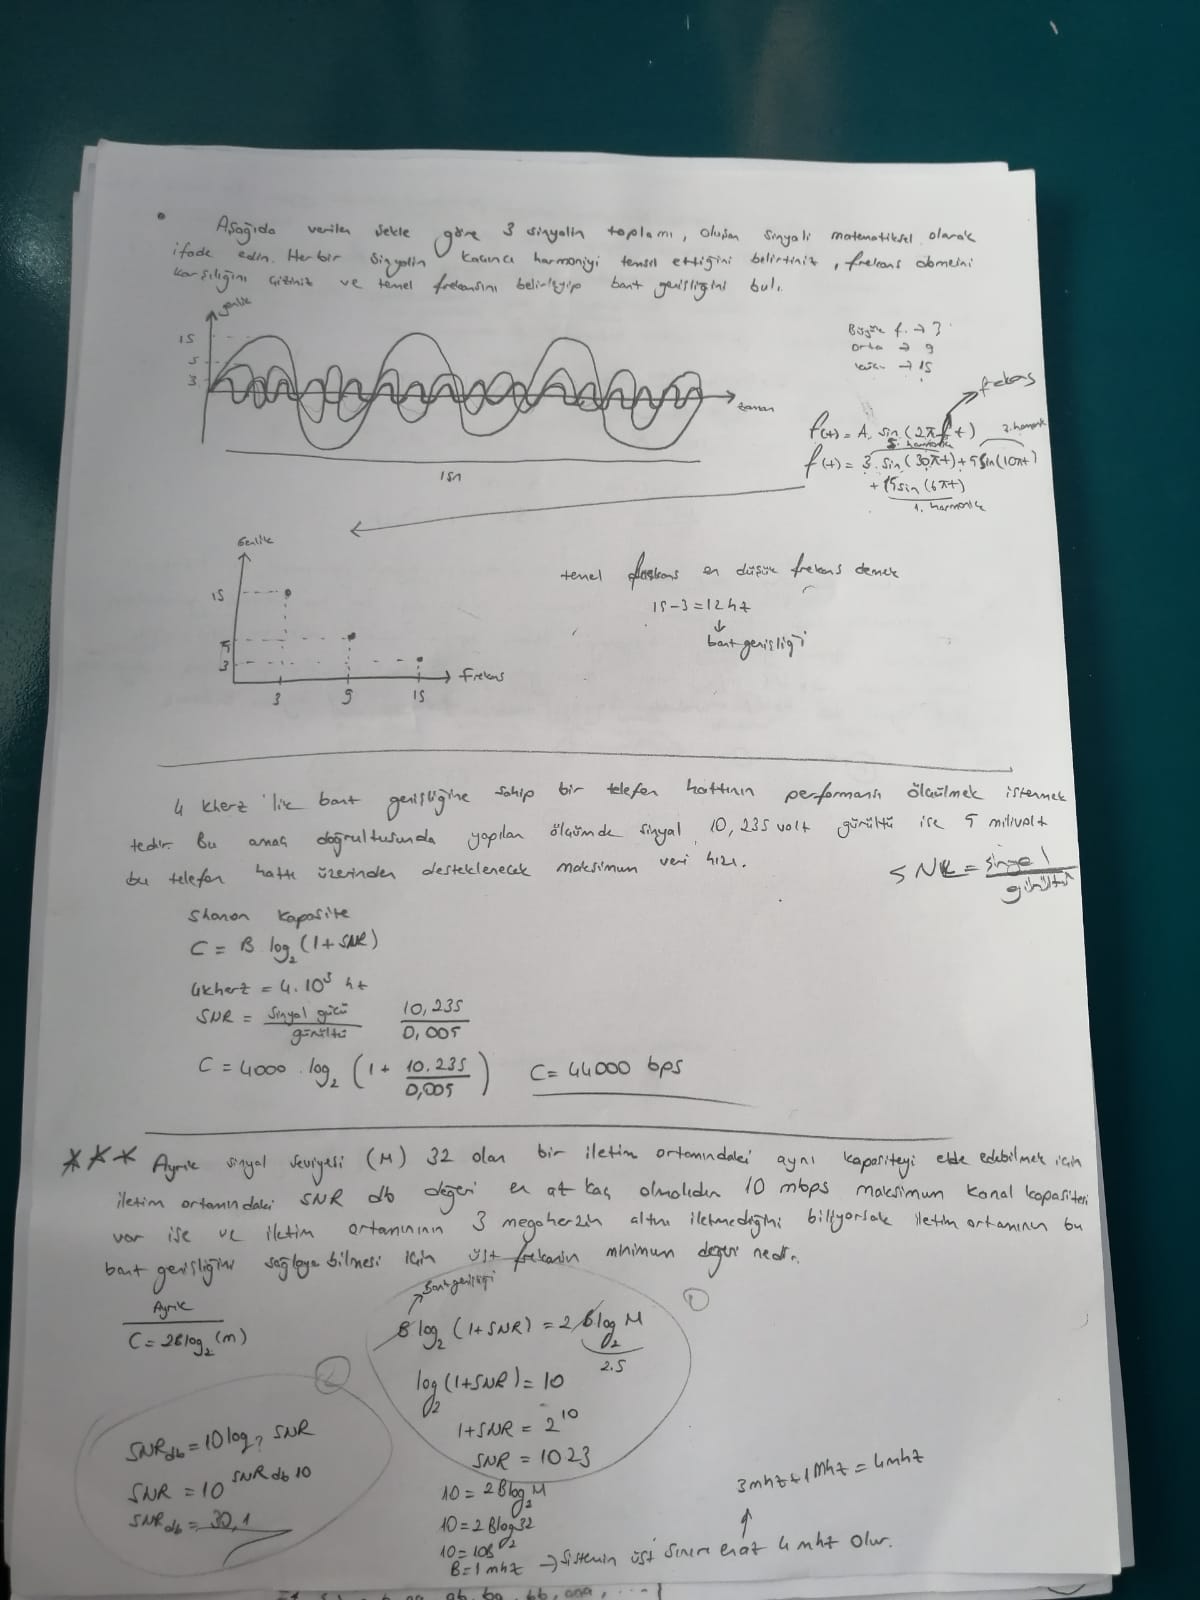 Aşağıda verilen şekle göre 3 sinyalin toplamı, oluşan sinyali matematiksel olarak
ifade edin. Her bir sinyalin kaçıncı harmoniyi temsil ettiğini belirtiniz, frekans domeini
karşılığını çiziniz ve temel frekansını belirleyip bant genişliğini bul.
genlik
15
5
3
zaman
1sn
Büyük f. → 3
orta → 9
→ 15
f(t) = A. sin(2πft)
5. harmonik
f(t) = 3. sin(30πt) + 5sin(10πt)
+ 15sin(6πt)
1. harmonik
Genlik
15
5
3
3 9 15
Frekans
temel frekans en düşük frekans demek
15-3=12hz
↓
bant genişliği
4 kherz 'lik bant genişliğine sahip bir telefon hattının performansı ölçülmek istenmek
tedir. Bu amaç doğrultusunda yapılan ölçümde sinyal 10,235 volt gürültü ise 5 milivolt
bu telefon hattı üzerinden desteklenecek maksimum veri hızı.
SNR = sinyal / gürültü
Shanon Kapasite
C = B log₂(1+SNR)
4kherz = 4.10³ hz
SNR = sinyal gücü / gürültü 10,235 / 0,005
C = 4000 . log₂ (1 + 10.235 / 0,005) C= 44000 bps
*** Ayrık sinyal seviyesi (M) 32 olan bir iletim ortamındaki aynı kapasiteyi elde edebilmek için
iletim ortamındaki SNR db değeri en az kaç olmalıdır 10 mbps maksimum kanal kapasitesi
var ise ve iletim ortamının 3 megaherzin altını iletmediğini biliyorsak iletim ortamının bu
bant genişliğini sağlayabilmesi için üst frekansın minimum değeri nedir.
Ayrık
C=2Blog₂(m)
Bant genişliği
1
B log₂ (1+SNR) = 2 B log₂ M
2.5
log₂(1+SNR) = 10
1+SNR = 2¹⁰
SNR = 1023
2
SNRdb = 10 log SNR
SNR = 10^SNRdb 10
SNRdb = 30,1
10 = 2Blog₂M
10 = 2Blog₂32
10 = 10B
B=1 mhz → Sistemin üst sınırı en az 4 mhz olur.
3mhz+1Mhz = 4mhz